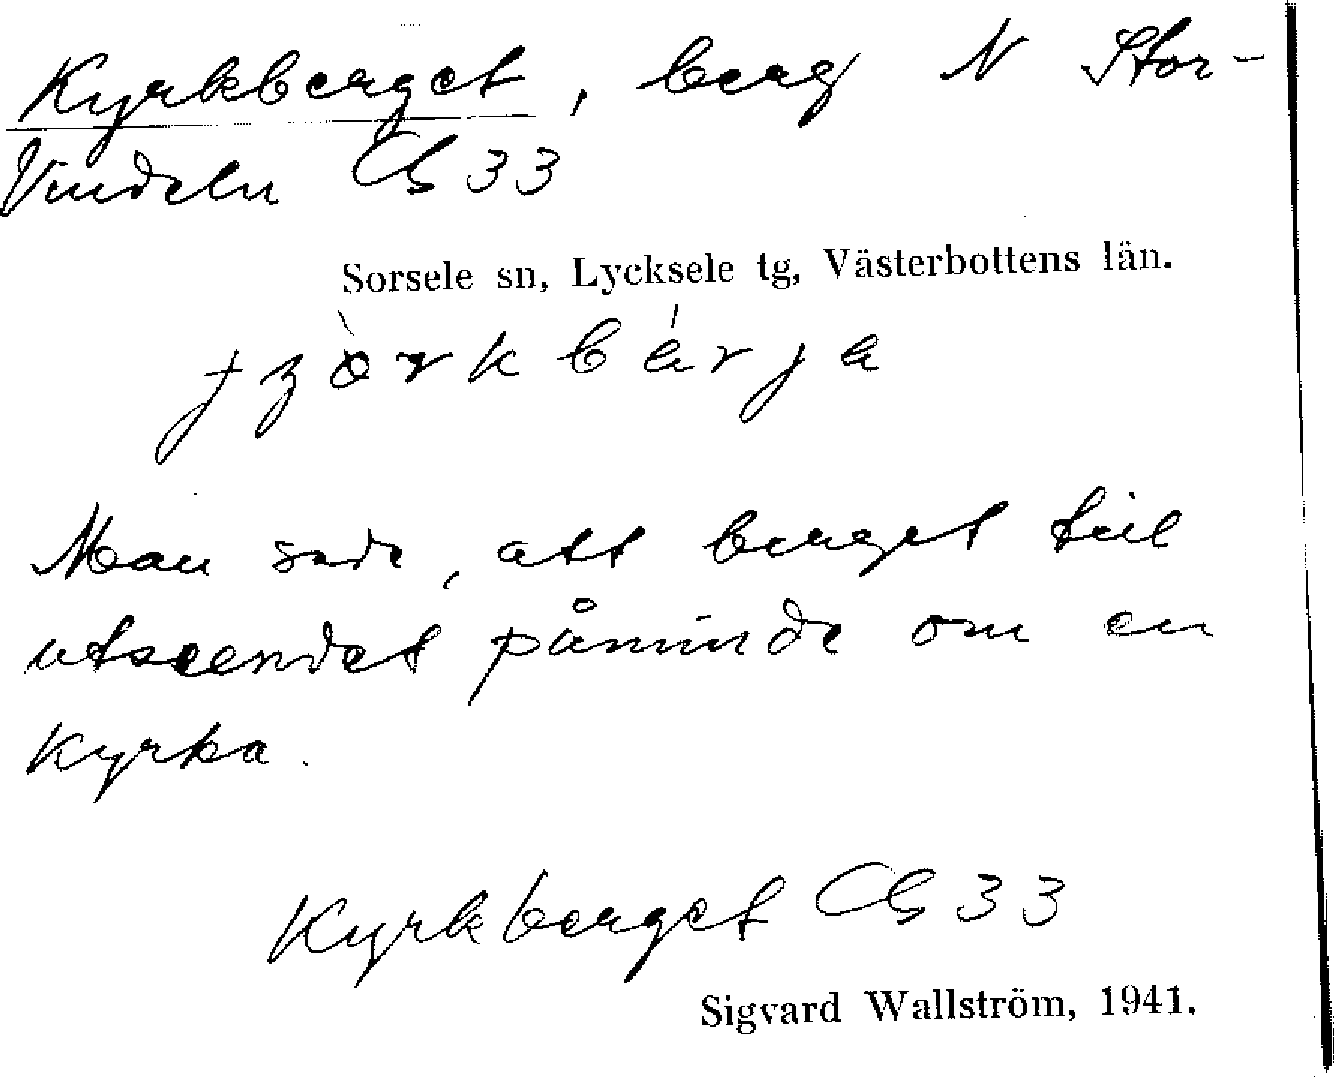 Kyrkberget, berg N Stor-
Vindeln Cb 33
Sorsele sn, Lycksele tg, Västerbottens län.
Man sade, att berget till
utseendet påminde om en
kyrka.
Kyrkberget Cb 33
Sigvard Wallström, 1941.